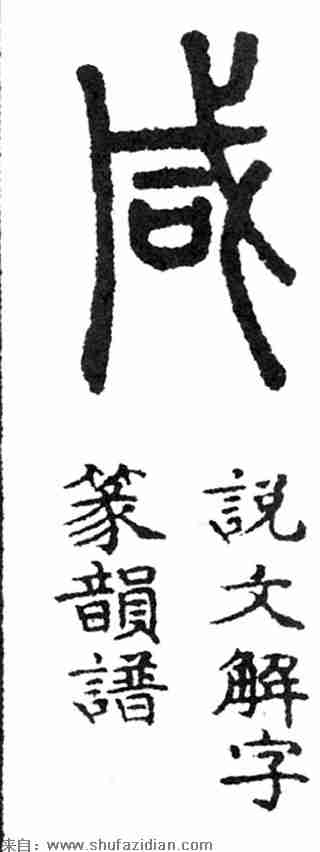 咸
說文解字
篆韻譜
来自：www.shufazidian.com